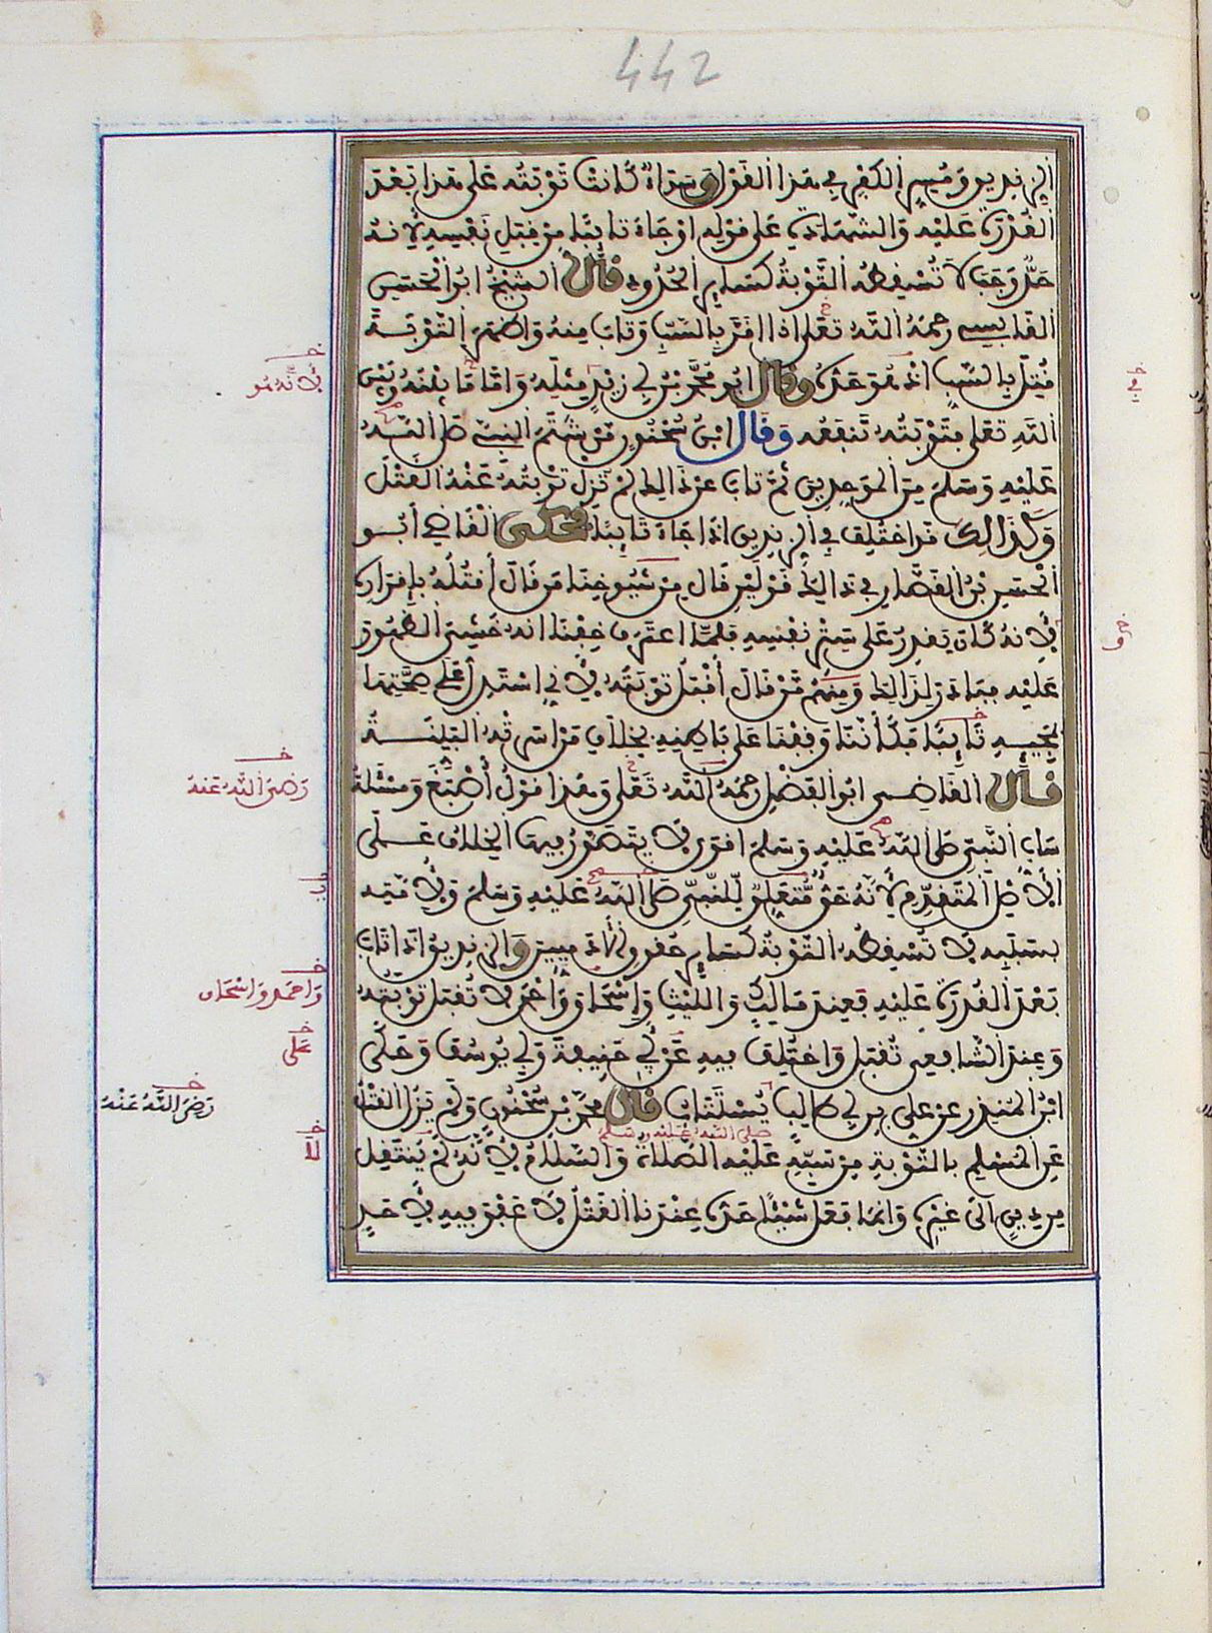 442
الزنديق ومسر الكفر في هذا القول وسواء كانت توبته على هذا بعد
القدرة عليه والشهادة على قوله او جاء تائبا من قبل نفسه لانه
حد وجب لا تسقطه التوبة كسائر الحدود قال الشيخ ابو الحسن
القابسي رحمه الله تعلى اذا اقر بالسب وتاب منه واظهر التوبة
قتل بالسب اذ هو حده وقال ابو محمد بن ابي زيد مثله واما ما بينه وبين
لانه هو
في
الله تعلى فتوبته تنفعه وقال ابن سحنون من شتم النبي صلى الله
عليه وسلم من الموحدين ثم تاب عن ذالك لم تزل توبته عنه القتل
وكذالك قد اختلف في الزنديق اذا جاء تائبا فحكى القاضي ابو
الحسن بن القصار في ذالك قولين قال من شيوخنا من قال اقتله باقراره
لانه كان يقدر على ستر نفسه فلما اعترف خفنا انه خشي الظهور
عليه فبادر لذالك ومنهم من قال اقبل توبته لاني استدل على صحتها
بمجيئه تائبا فكأننا وقفنا على باطنه بخلاف من اسرته البينة
قال القاضي ابو الفضل رحمه الله تعلى وهذا قول اصبغ ومسئلة
رضي الله عنه
ساب النبي صلى الله عليه وسلم اقوى لا يتصور فيها الخلاف على
الاصل المتقدم لانه حق متعلق للنبي صلى الله عليه وسلم ولامته
بسببه لا تسقطه التوبة كسائر حقوق الادميين والزنديق اذا تاب
بعد القدرة عليه فعند مالك والليث واسحاق واحمد لا تقبل توبته
واحمد واسحاق
وعند الشافعي تقبل واختلف فيه عن ابي حنيفة وابي يوسف وحكى
على
ابن المنذر عن علي بن ابي طالب يستتاب قال محمد بن سحنون ولم يزل القتل
رضي الله عنه
صلى الله عليه وسلم
عن المسلم بالتوبة من سبه عليه الصلاة والسلام لانه لم ينتقل
لا
من دين الى غيره وانما فعل شيئا حده عندنا القتل لا عفو فيه لاحد